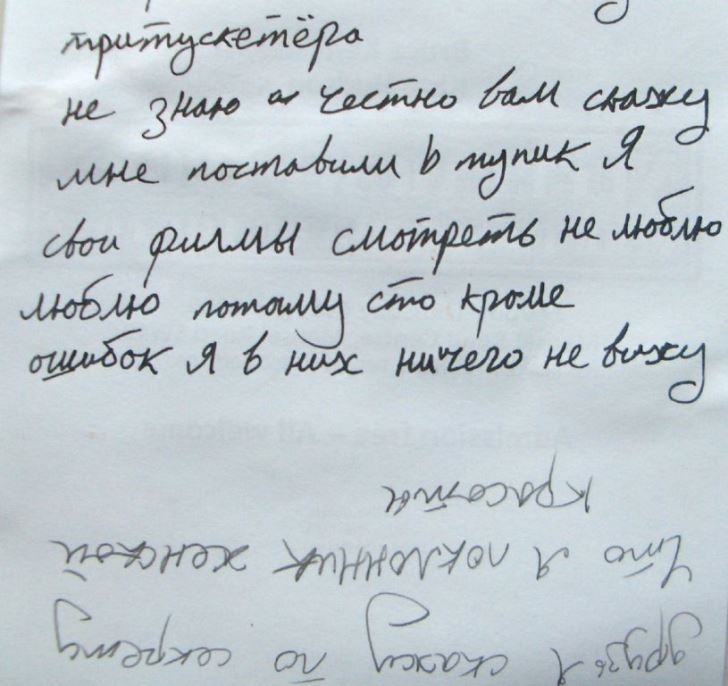 тритускетёра
не знаю а честно вам скажу
мне поставили в тупик Я
свои филмы смотреть не люблю
люблю потому сто кроме
ошибок я в них ничего не вижу
друзья скажу по секрету
Что я поклонник женской
красоты